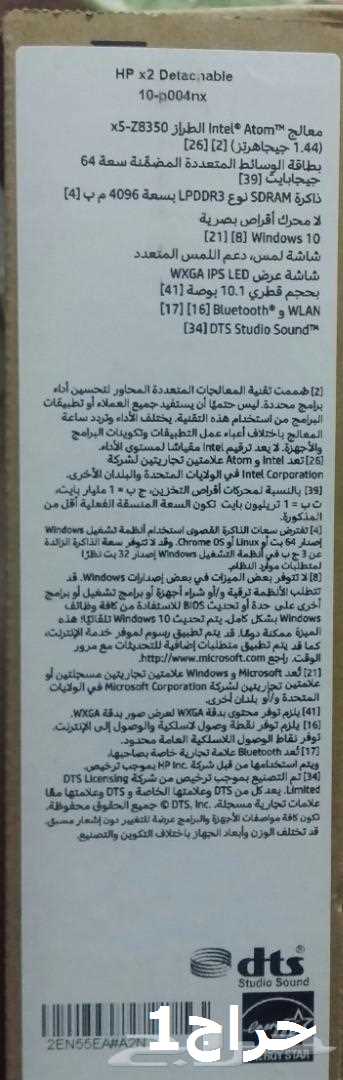 HP x2 Detachable
10-p004nx
معالج Intel® Atom™ الطراز x5-Z8350
(1.44 جيجاهرتز) [2] [26]
بطاقة الوسائط المتعددة المضمّنة سعة 64
جيجابايت [39]
ذاكرة SDRAM نوع LPDDR3 بسعة 4096 م ب [4]
لا محرك أقراص بصرية
Windows 10 [8] [21]
شاشة لمس، دعم اللمس المتعدد
شاشة عرض WXGA IPS LED
بحجم قطري 10.1 بوصة [41]
WLAN و Bluetooth® [16] [17]
DTS Studio Sound™ [34]
[2] صُممت تقنية المعالجات المتعددة المحاور لتحسين أداء
برامج محددة. ليس حتميًا أن يستفيد جميع العملاء أو تطبيقات
البرامج من استخدام هذه التقنية. يختلف الأداء وتردد ساعة
المعالج باختلاف أعباء عمل التطبيقات وتكوينات البرامج
والأجهزة. لا يعد ترقيم Intel مقياسًا لمستوى الأداء.
[26] تعد Intel و Atom علامتين تجاريتين لشركة
Intel Corporation في الولايات المتحدة والبلدان الأخرى.
[39] بالنسبة لمحركات أقراص التخزين، ج ب = 1 مليار بايت،
ت ب = 1 تريليون بايت. تكون السعة المنسقة الفعلية أقل من
المذكورة.
[4] تفترض سعات الذاكرة القصوى استخدام أنظمة تشغيل Windows
إصدار 64 بت أو Linux أو Chrome OS. وقد لا تتوفر سعة الذاكرة الزائدة
عن 3 ج ب في أنظمة التشغيل Windows إصدار 32 بت نظرًا
لمتطلبات موارد النظام.
[8] لا تتوفر بعض الميزات في بعض إصدارات Windows. قد
تتطلب الأنظمة ترقية و/أو شراء أجهزة أو برامج تشغيل أو برامج
أخرى على حدة أو تحديث BIOS للاستفادة من كافة وظائف
Windows بشكل كامل. يتم تحديث Windows 10 تلقائيًا؛ هذه
الميزة ممكنة دومًا. قد يتم تطبيق رسوم لموفر خدمة الإنترنت،
كما قد يتم تطبيق متطلبات إضافية للتحديثات مع مرور
الوقت. راجع http://www.microsoft.com.
[21] تُعد Microsoft و Windows علامتين تجاريتين مسجلتين أو
علامتين تجاريتين لشركة Microsoft Corporation في الولايات
المتحدة و/أو بلدان أخرى.
[41] يلزم توفر محتوى بدقة WXGA لعرض صور بدقة WXGA.
[16] يلزم توفر نقطة وصول لاسلكية والوصول إلى الإنترنت.
توفر نقاط الوصول اللاسلكية العامة محدود.
[17] تُعد Bluetooth علامة تجارية خاصة بصاحبها،
ويتم استخدامها من قبل HP Inc. بموجب ترخيص.
[34] تم التصنيع بموجب ترخيص من شركة DTS Licensing
Limited. يعد كل من DTS وعلامتها الخاصة و DTS وعلامتها معًا
علامات تجارية مسجلة. DTS, Inc. © جميع الحقوق محفوظة.
تكون كافة مواصفات الأجهزة والبرامج عرضة للتغيير دون إشعار مسبق.
قد تختلف الوزن وأبعاد الجهاز باختلاف التكوين والتصنيع.
dts
Studio Sound
2EN55EA#A2N
حراج1
ENERGY STAR